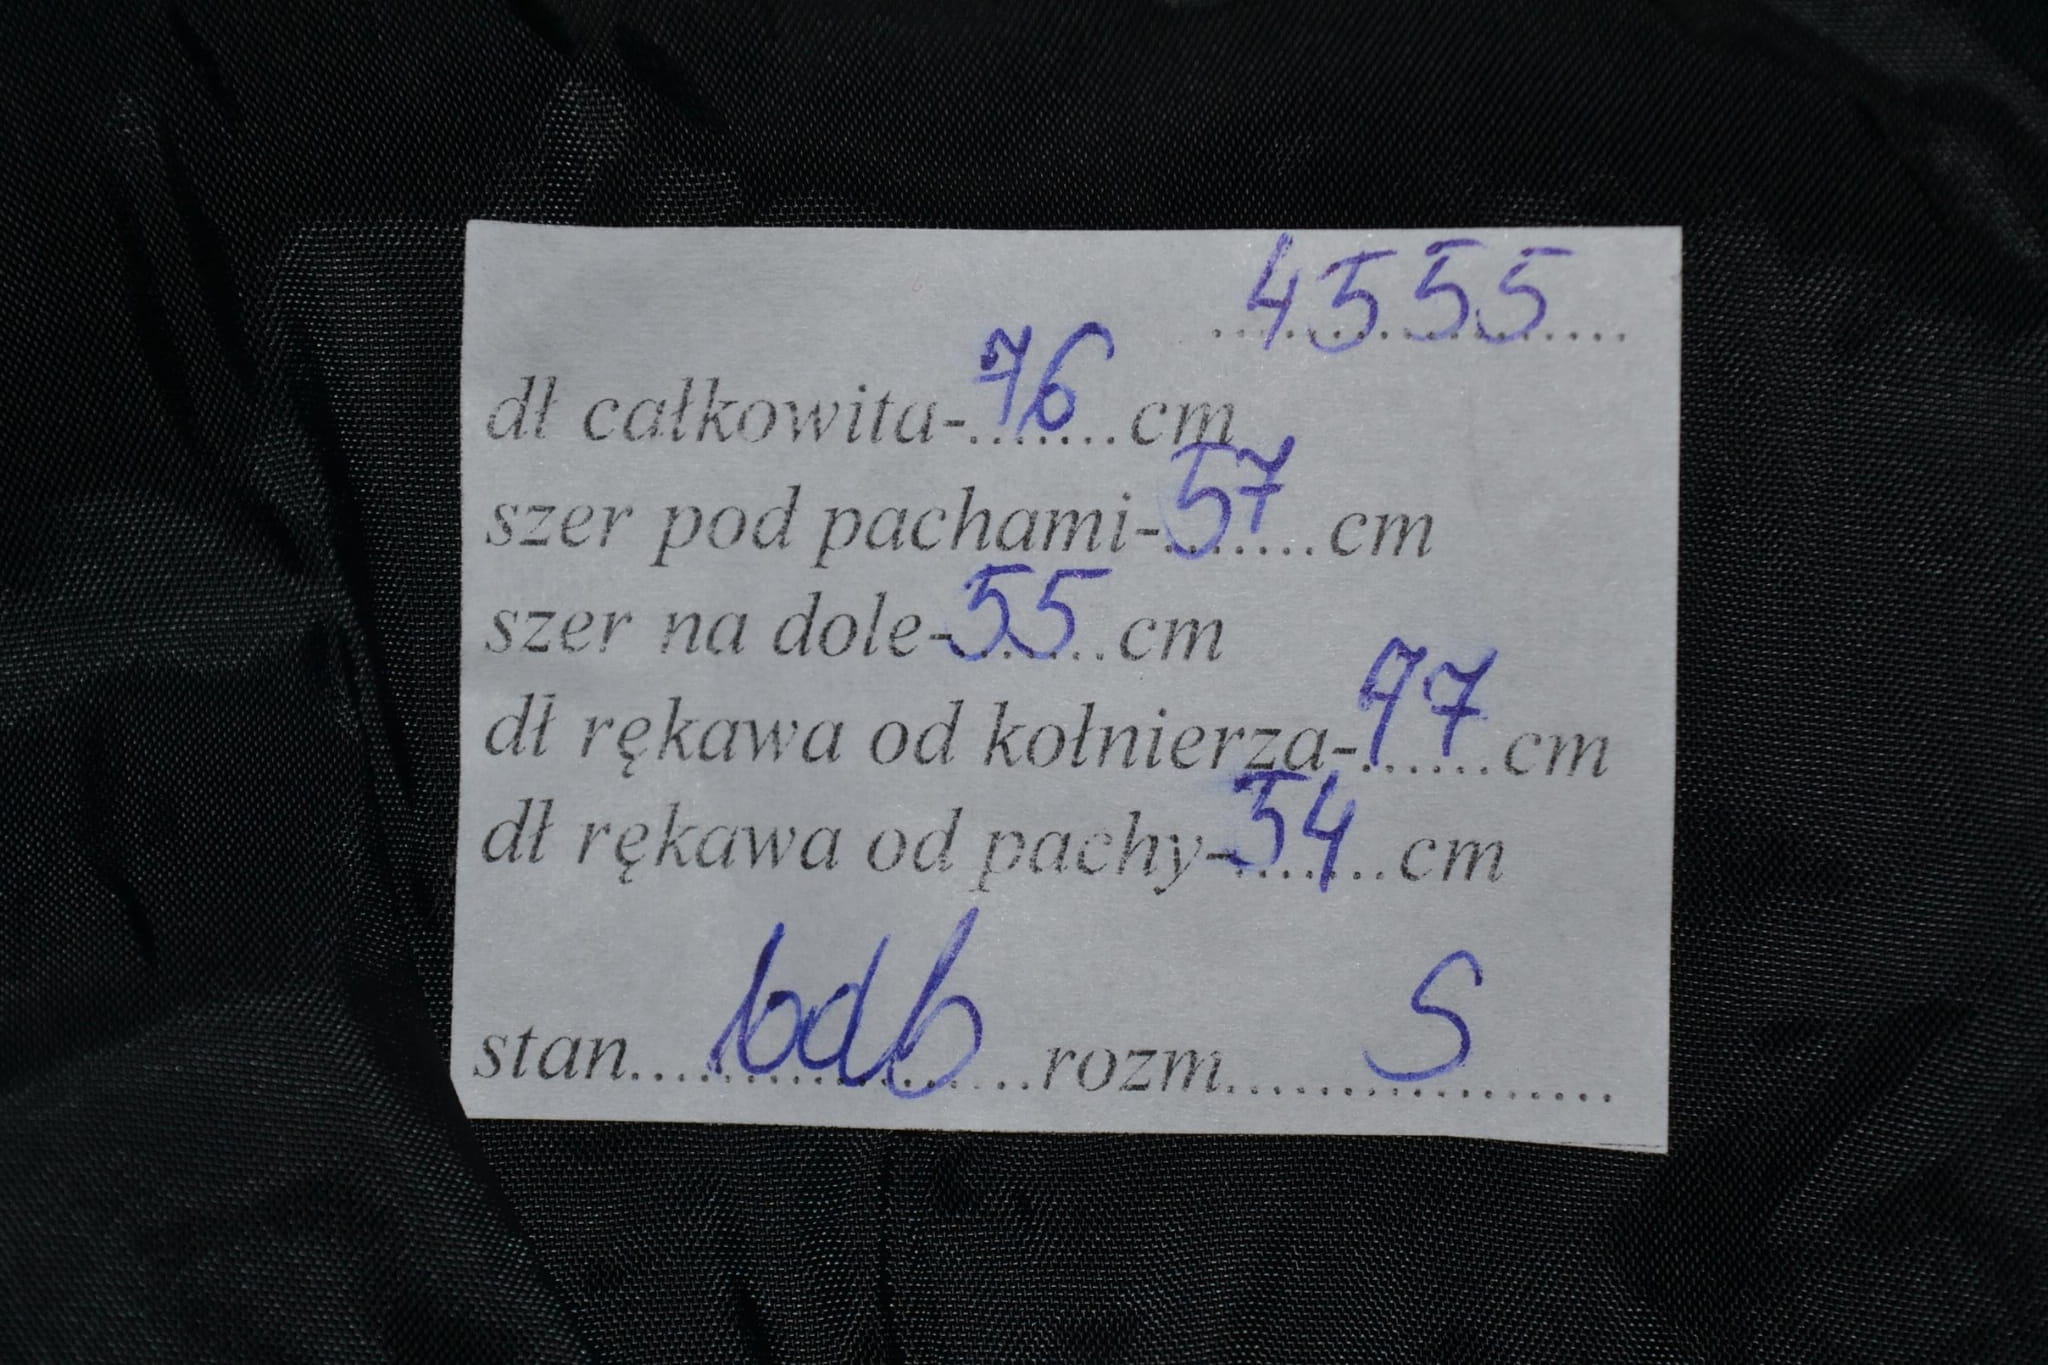 4555
dł całkowita-76.......cm
szer pod pachami-57.......cm
szer na dole-55.......cm
dł rękawa od kołnierza-77......cm
dł rękawa od pachy-54.......cm
stan....bdb....rozm....S....